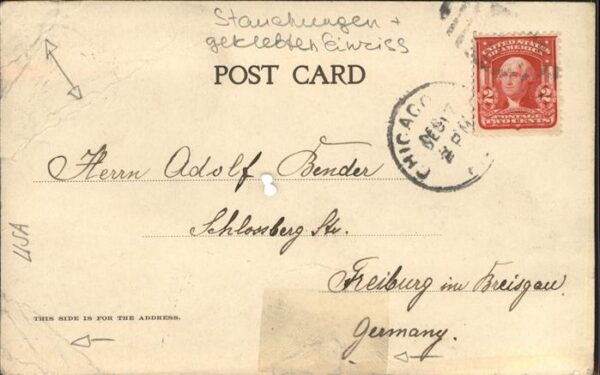 Stauchungen +
geklebter Einriss
POST CARD
UNITED STATES
OF AMERICA
2 2
POSTAGE
TWO CENTS
CHICAGO
DEC 17
2 PM
Herrn Adolf Bender
Schlossberg Str.
Freiburg im Breisgau.
Germany.
USA
THIS SIDE IS FOR THE ADDRESS.